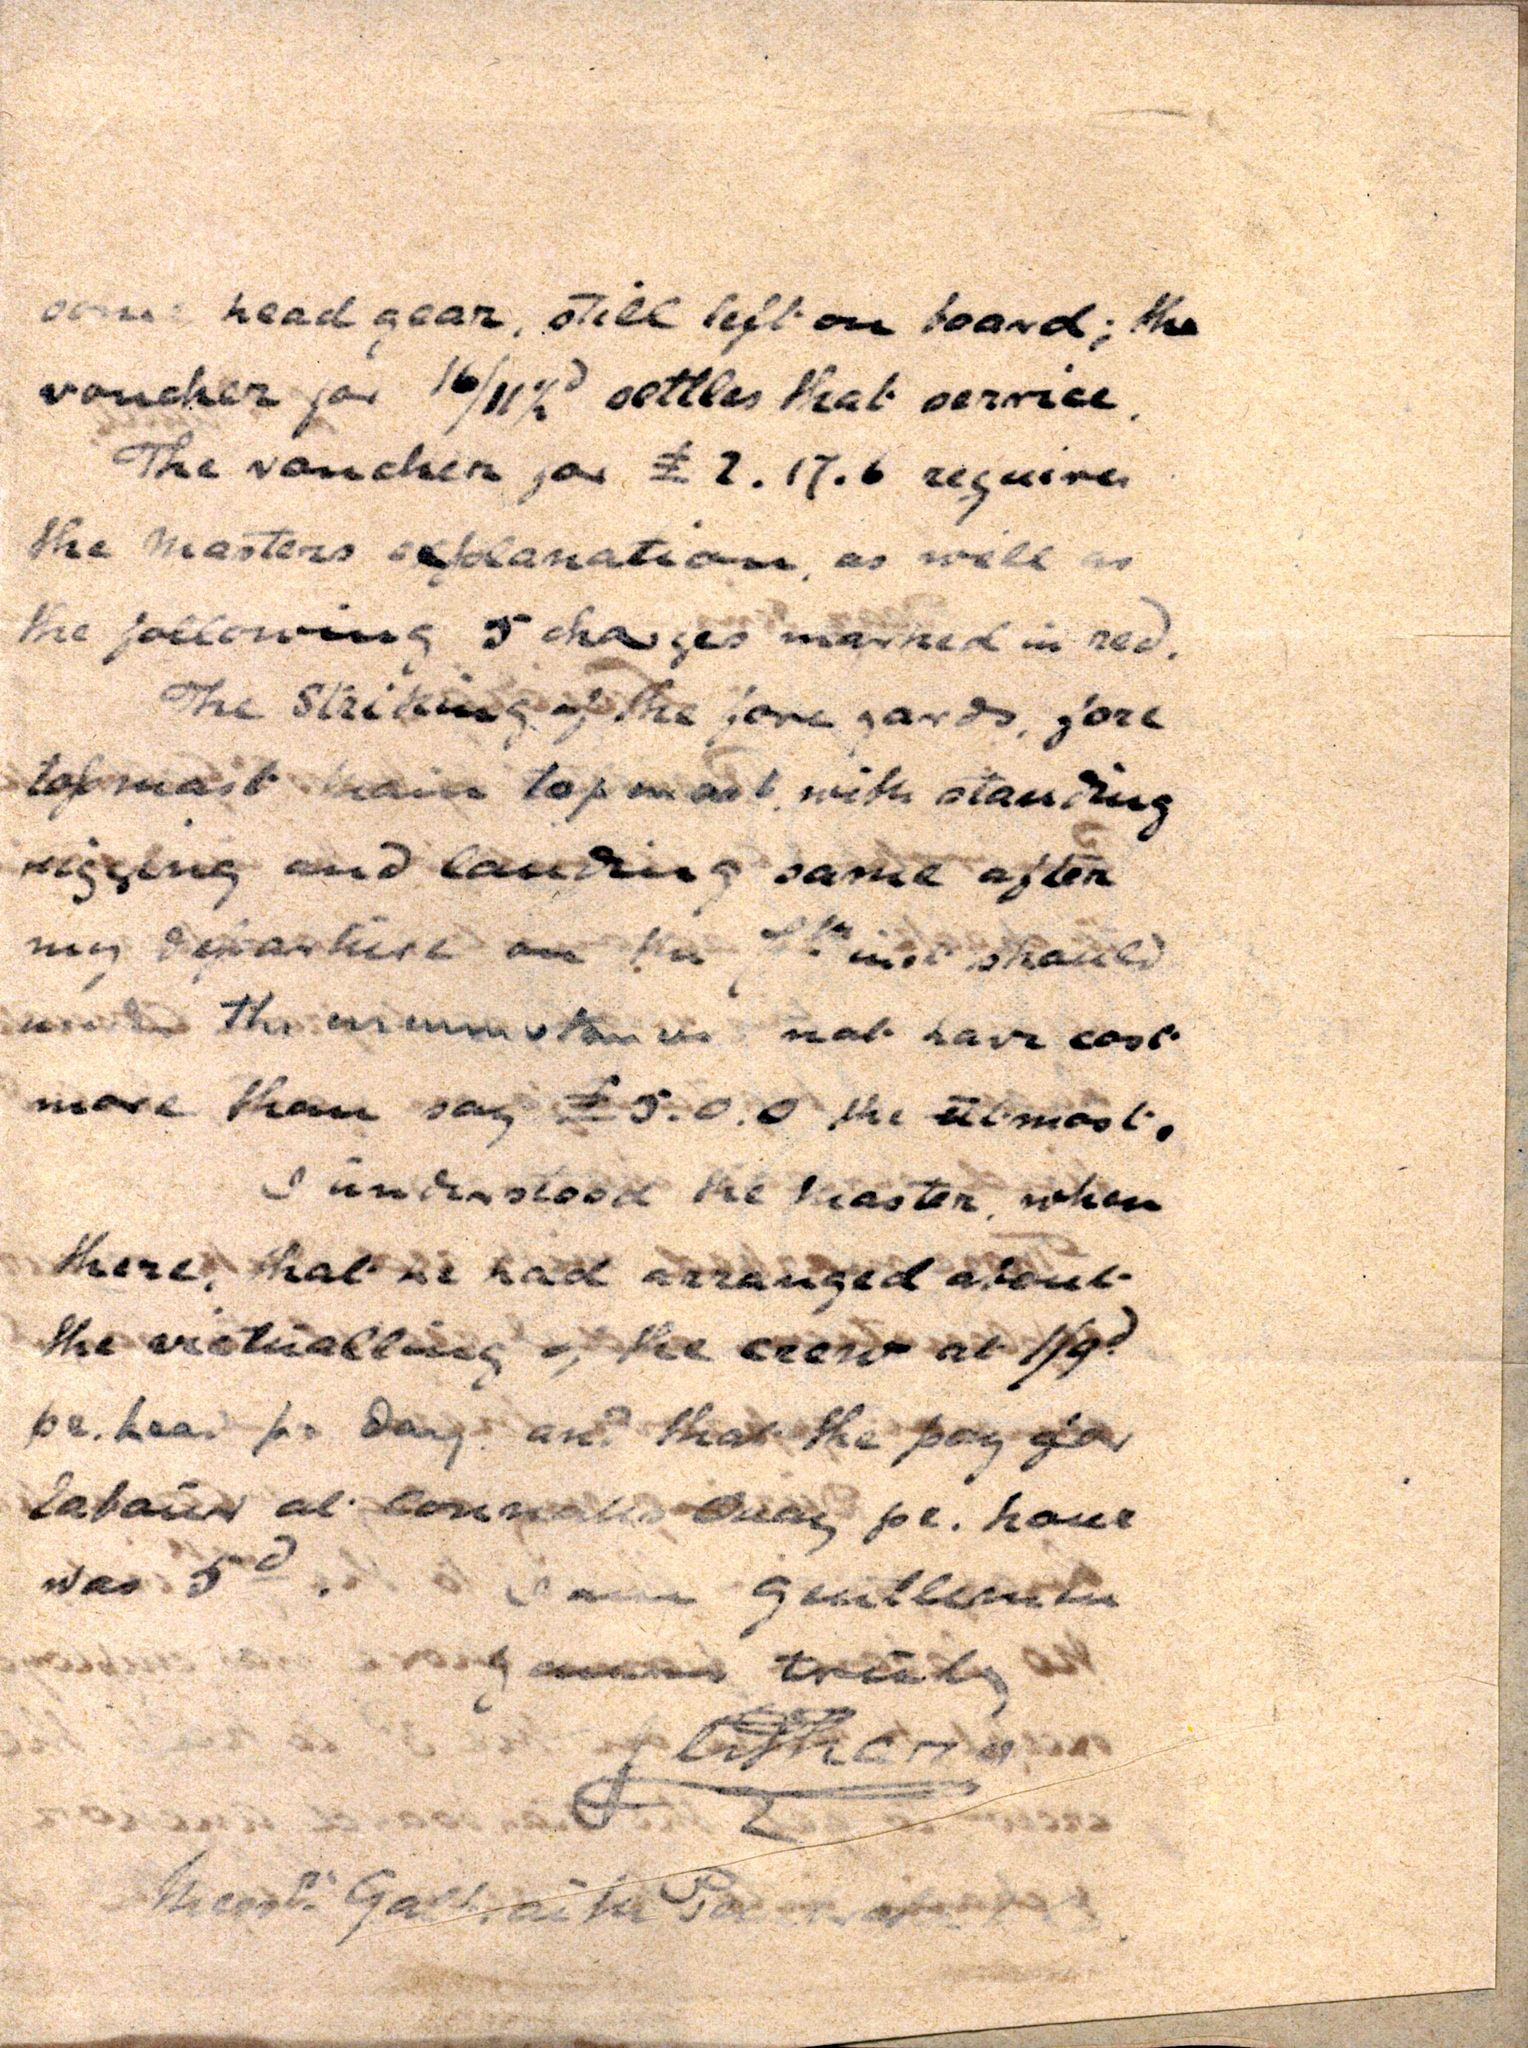 some head gear, still left on board; the
voucher for 16/11½d settles that service.
The voucher for £2.17.6 requires
the Masters explanation, as well as
the following 5 charges marked in red.
The Striking of the fore yards, fore
topmast main topmast, with standing
rigging and landing same after
my departure on the 7th inst should
under the circumstances not have cost
more than say £5.0.0 the utmost.
I understood the Master, when
there, that he had arranged about
the victualling of the crew at 1/9d
pr. head pr day. and that the pay for
labour at Connahs Quay pr. hour
was 5d. I am Gentlemen
yours truly
Messrs Galbraith